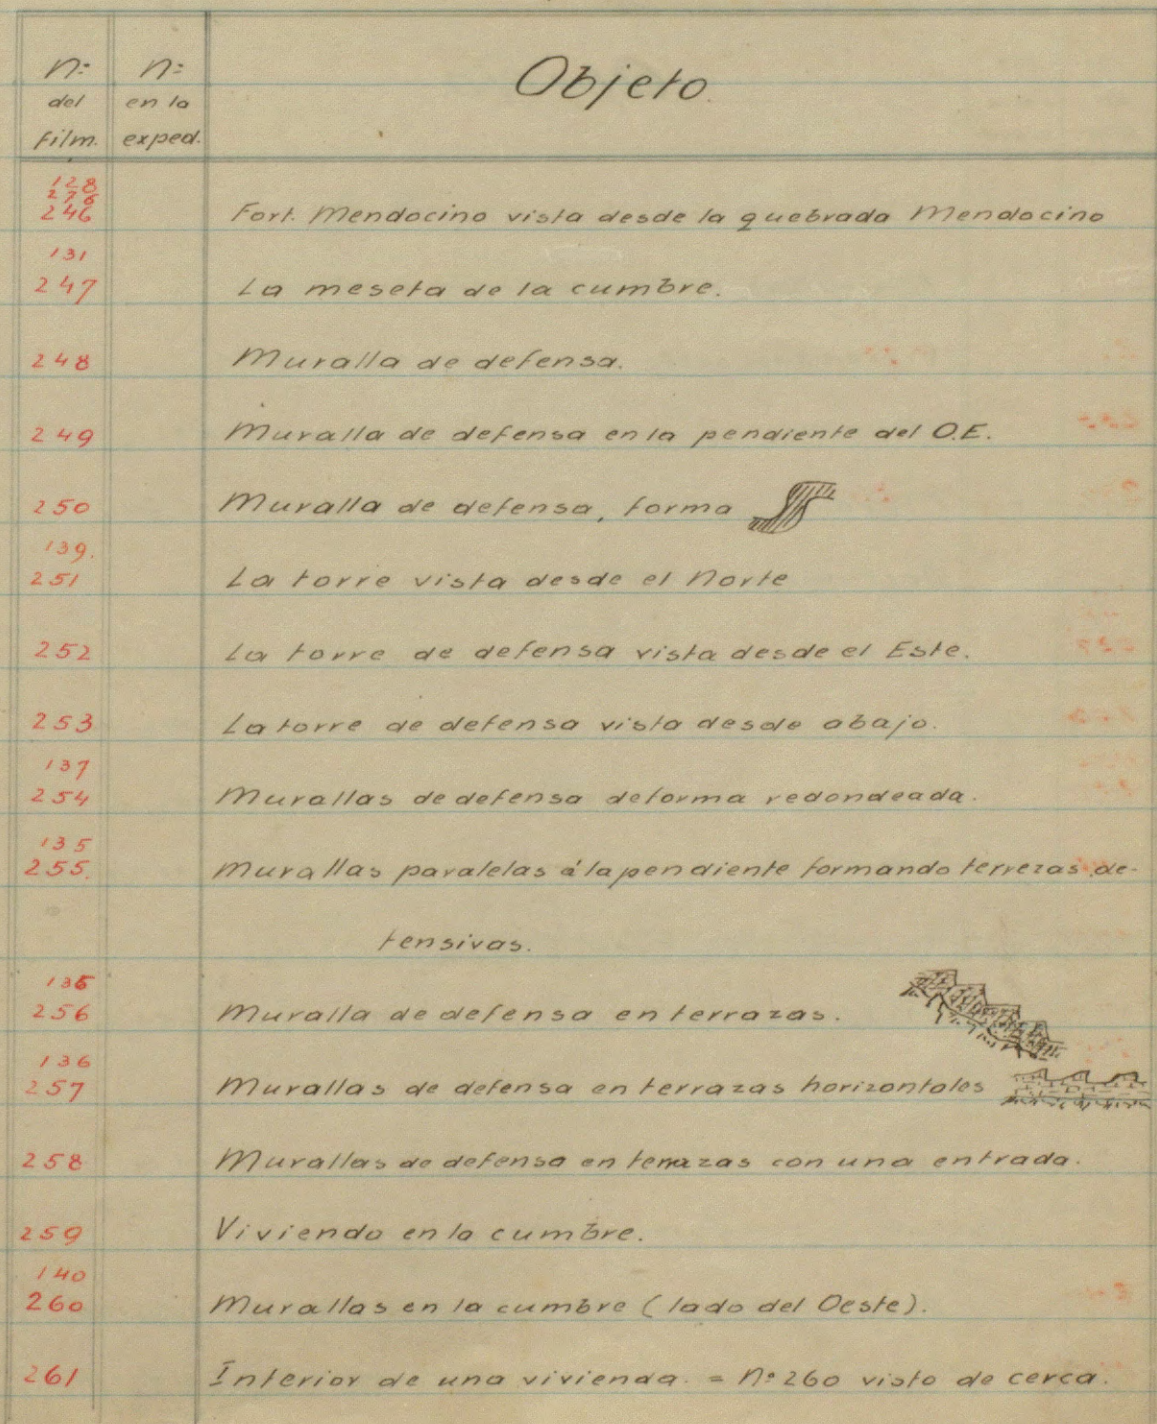 Nº Nº Objeto.
del en la
film. exped.
128
276
246 Fort. Mendocino vista desde la quebrada Mendocino
131
247 La meseta de la cumbre.
248 Muralla de defensa.
249 Muralla de defensa en la pendiente del O.E.
250 Muralla de defensa, forma
139.
251 La torre vista desde el Norte
252 La torre de defensa vista desde el Este.
253 La torre de defensa vista desde abajo.
137
254 Murallas de defensa de forma redondeada.
135
255. Murallas paralelas á la pendiente formando terrezas de-
fensivas.
136
256 Muralla de defensa en terrazas.
136
257 Murallas de defensa en terrazas horizontales
258 Murallas de defensa en terrazas con una entrada.
259 Vivienda en la cumbre.
140
260 Murallas en la cumbre (lado del Oeste).
261 Interior de una vivienda. = Nº 260 visto de cerca.